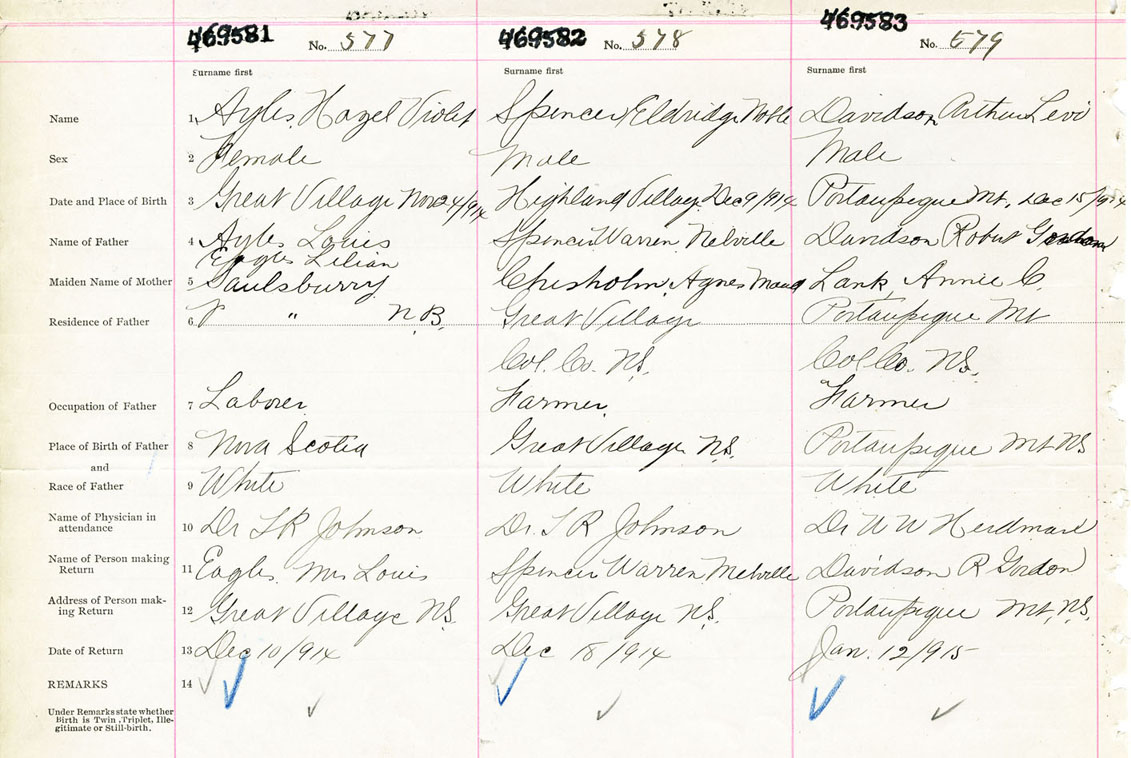 469581 No. 577 469582 No. 578 469583 No. 579
Surname first Surname first Surname first
Name 1 Ayles, Hazel Violet Spencer Eldridge Noble Davidson Arthur Levi
Sex 2 Female Male Male
Date and Place of Birth 3 Great Village Nov 24/914 Highland Village Dec 9/914 Portaupique Mt, Dec 15/914
Name of Father 4 Ayles Louis Spencer Warren Melville Davidson Robert Gordon
Eagles Lilian
Maiden Name of Mother 5 Saulsburry Chisholm, Agnes Maud Lank, Annie C.
Residence of Father 6 " N.B. Great Village Portaupique Mt
Col. Co. N.S. Col Co. N.S.
Occupation of Father 7 Laborer Farmer Farmer
Place of Birth of Father 8 Nova Scotia Great Village N.S. Portaupique Mt NS
and
Race of Father 9 White White White
Name of Physician in
attendance 10 Dr T R Johnson Dr. T R Johnson Dr W W Herdman
Name of Person making
Return 11 Eagles, Mrs Louis Spencer Warren Melville Davidson R Gordon
Address of Person mak-
ing Return 12 Great Village N.S. Great Village N.S. Portaupique Mt, N.S.
Date of Return 13 Dec 10/914 Dec 18/914 Jan. 12/915
REMARKS 14
Under Remarks state whether
Birth is Twin, Triplet, Ille-
gitimate or Still-birth.